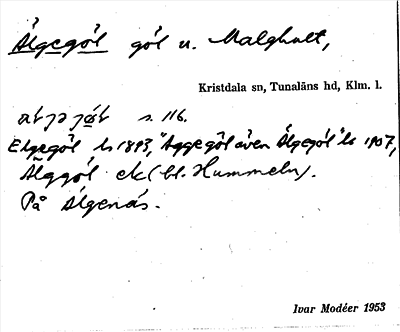 Älgegöl göl u. Malghult,
Kristdala sn, Tunaläns hd, Klm. l.
s. 116.
Elgegöl ls 1893, "Aggegöl även Älgegöl" ls 1907,
Älggöl ek (bl. Hummeln).
På Älgenäs.
Ivar Modéer 1953